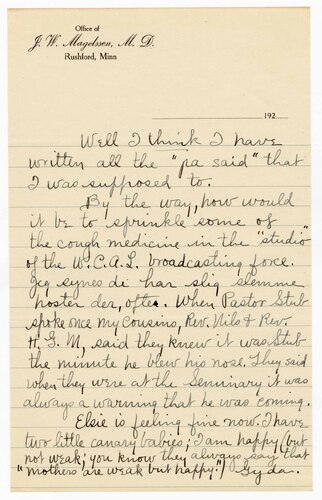 Office of
J. W. Magelssen, M. D.
Rushford, Minn
192
Well I think I have
written all the "pa said" that
I was supposed to.
By the way, how would
it be to sprinkle some of
the cough medicine in the "studio"
of the W.C.A.L. broadcasting force.
Jeg synes di har slig slemme
hoster der, ofte. When Pastor Stub
spoke once my cousins, Rev. Nils & Rev.
H. G. M, said they knew it was Stub
the minute he blew his nose. They said
when they were at the Seminary it was
always a warning that he was coming.
Elsie is feeling fine now. I have
two little canary babies; I am happy (but
not weak; you know they always say that
"mothers are weak but happy") Gyda.